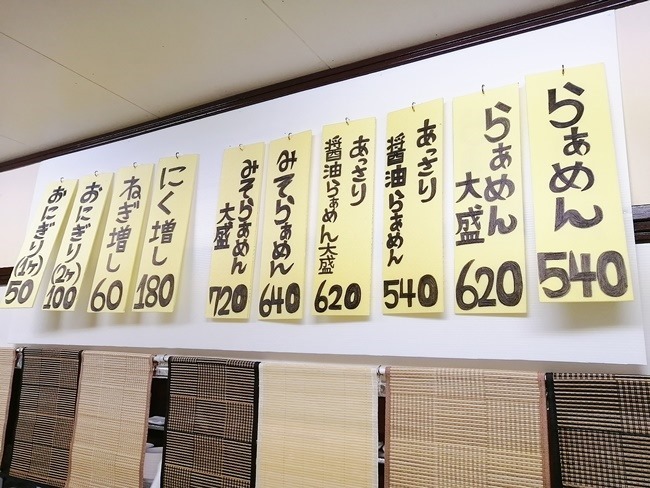 らぁめん
540
らぁめん
大盛
620
あっさり
醤油らぁめん
540
あっさり
醤油らぁめん大盛
620
みそらぁめん
640
みそらぁめん
大盛
720
にく増し
180
ねぎ増し
60
おにぎり(2ヶ)
100
おにぎり(1ヶ)
50